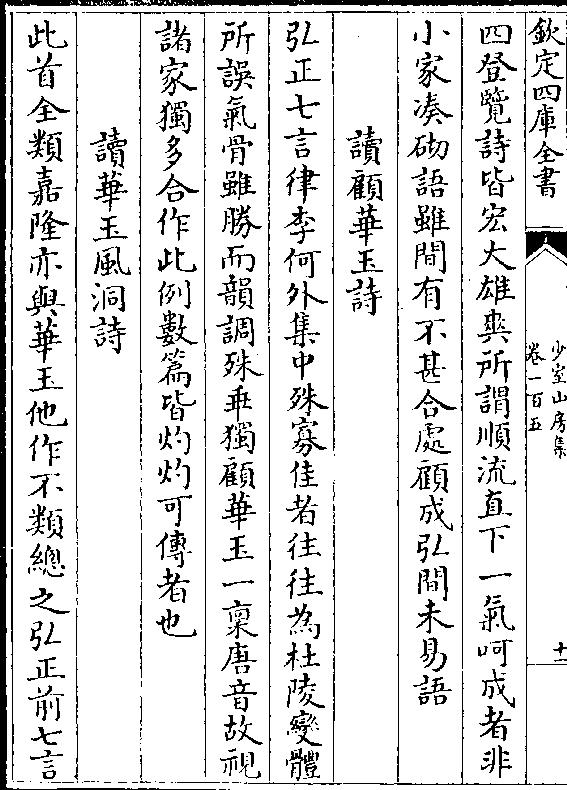 欽定四庫全書
少室山房集
卷一百五
十一
四登覽詩皆宏大雄爽所謂順流直下一氣呵成者非
小家湊砌語雖間有不甚合處顧成弘間未易語
讀顧華玉詩
弘正七言律李何外集中殊寡佳者往往為杜陵變體
所誤氣骨雖勝而韻調殊乖獨顧華玉一稟唐音故視
諸家獨多合作此例數篇皆灼灼可傳者也
讀華玉風洞詩
此首全類嘉隆亦與華玉他作不類總之弘正前七言